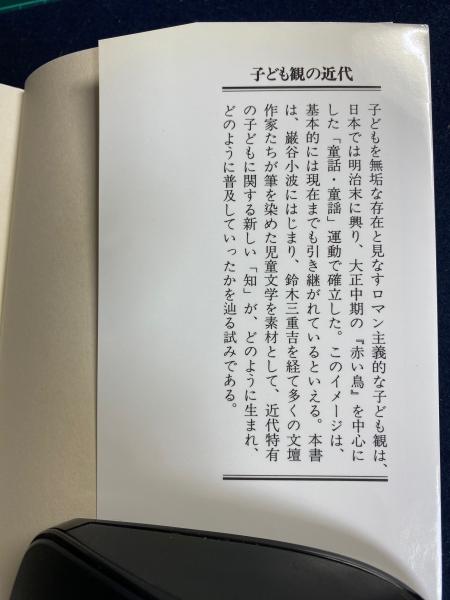 子ども観の近代
子どもを無垢な存在と見なすロマン主義的な子ども観は、
日本では明治末に興り、大正中期の『赤い鳥』を中心に
した「童話・童謡」運動で確立した。このイメージは、
基本的には現在までも引き継がれているといえる。本書
は、巌谷小波にはじまり、鈴木三重吉を経て多くの文壇
作家たちが筆を染めた児童文学を素材として、近代特有
の子どもに関する新しい「知」が、どのように生まれ、
どのように普及していったかを辿る試みである。